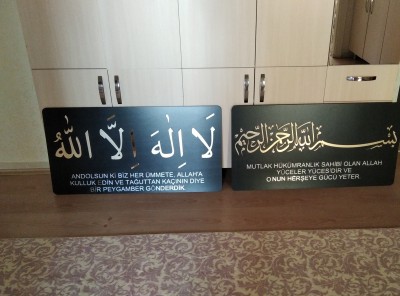 لَا اِلٰهَ اِلَّا اللّٰهُ
ANDOLSUN Kİ BİZ HER ÜMMETE, ALLAH'A
KULLUK EDİN VE TAĞUTTAN KAÇININ DİYE
BİR PEYGAMBER GÖNDERDİK
بِسْمِ اللّٰهِ الرَّحْمٰنِ الرَّحِيْمِ
MUTLAK HÜKÜMRANLIK SAHİBİ OLAN ALLAH
YÜCELER YÜCESİ'DİR VE
ONUN HERŞEYE GÜCÜ YETER